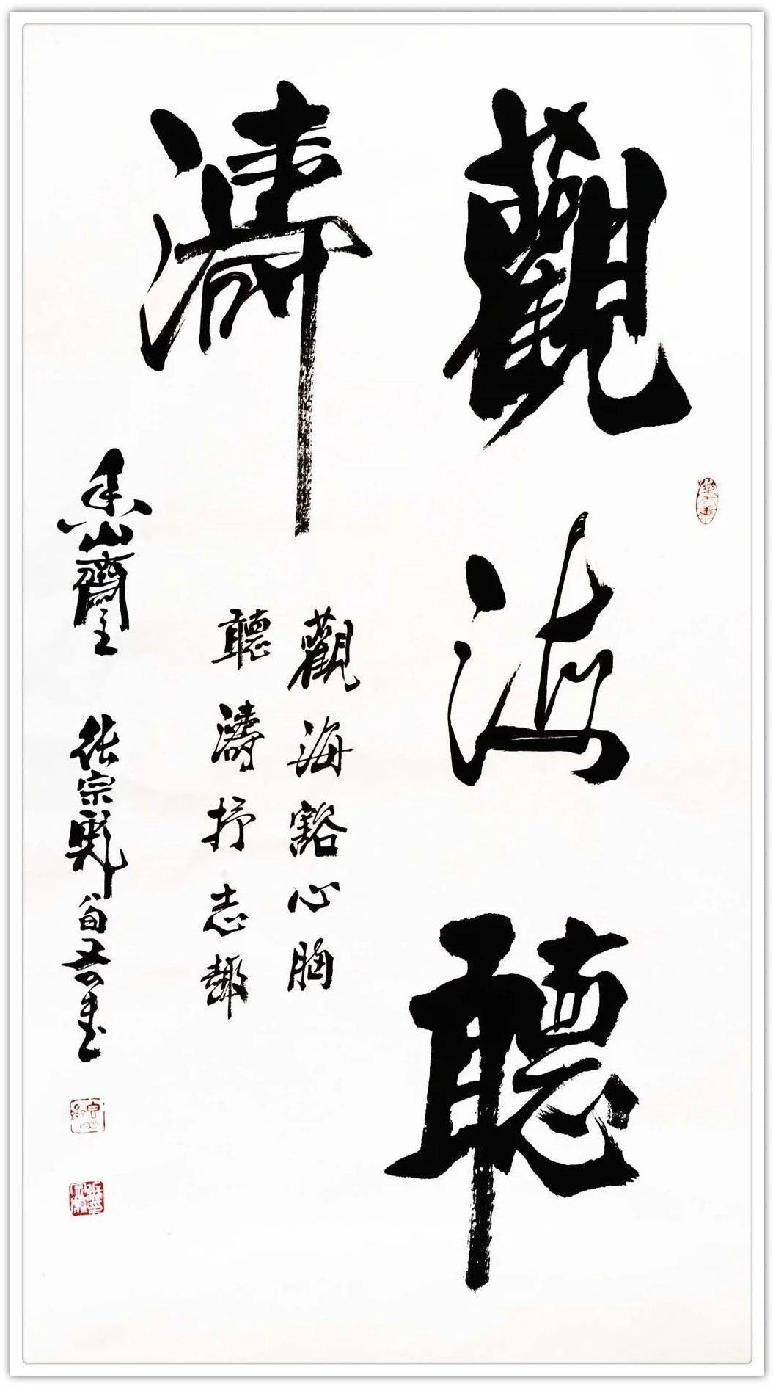 觀海聽
濤
觀海豁心胸
聽濤抒志趣
香山齋主 張宗彪自右書